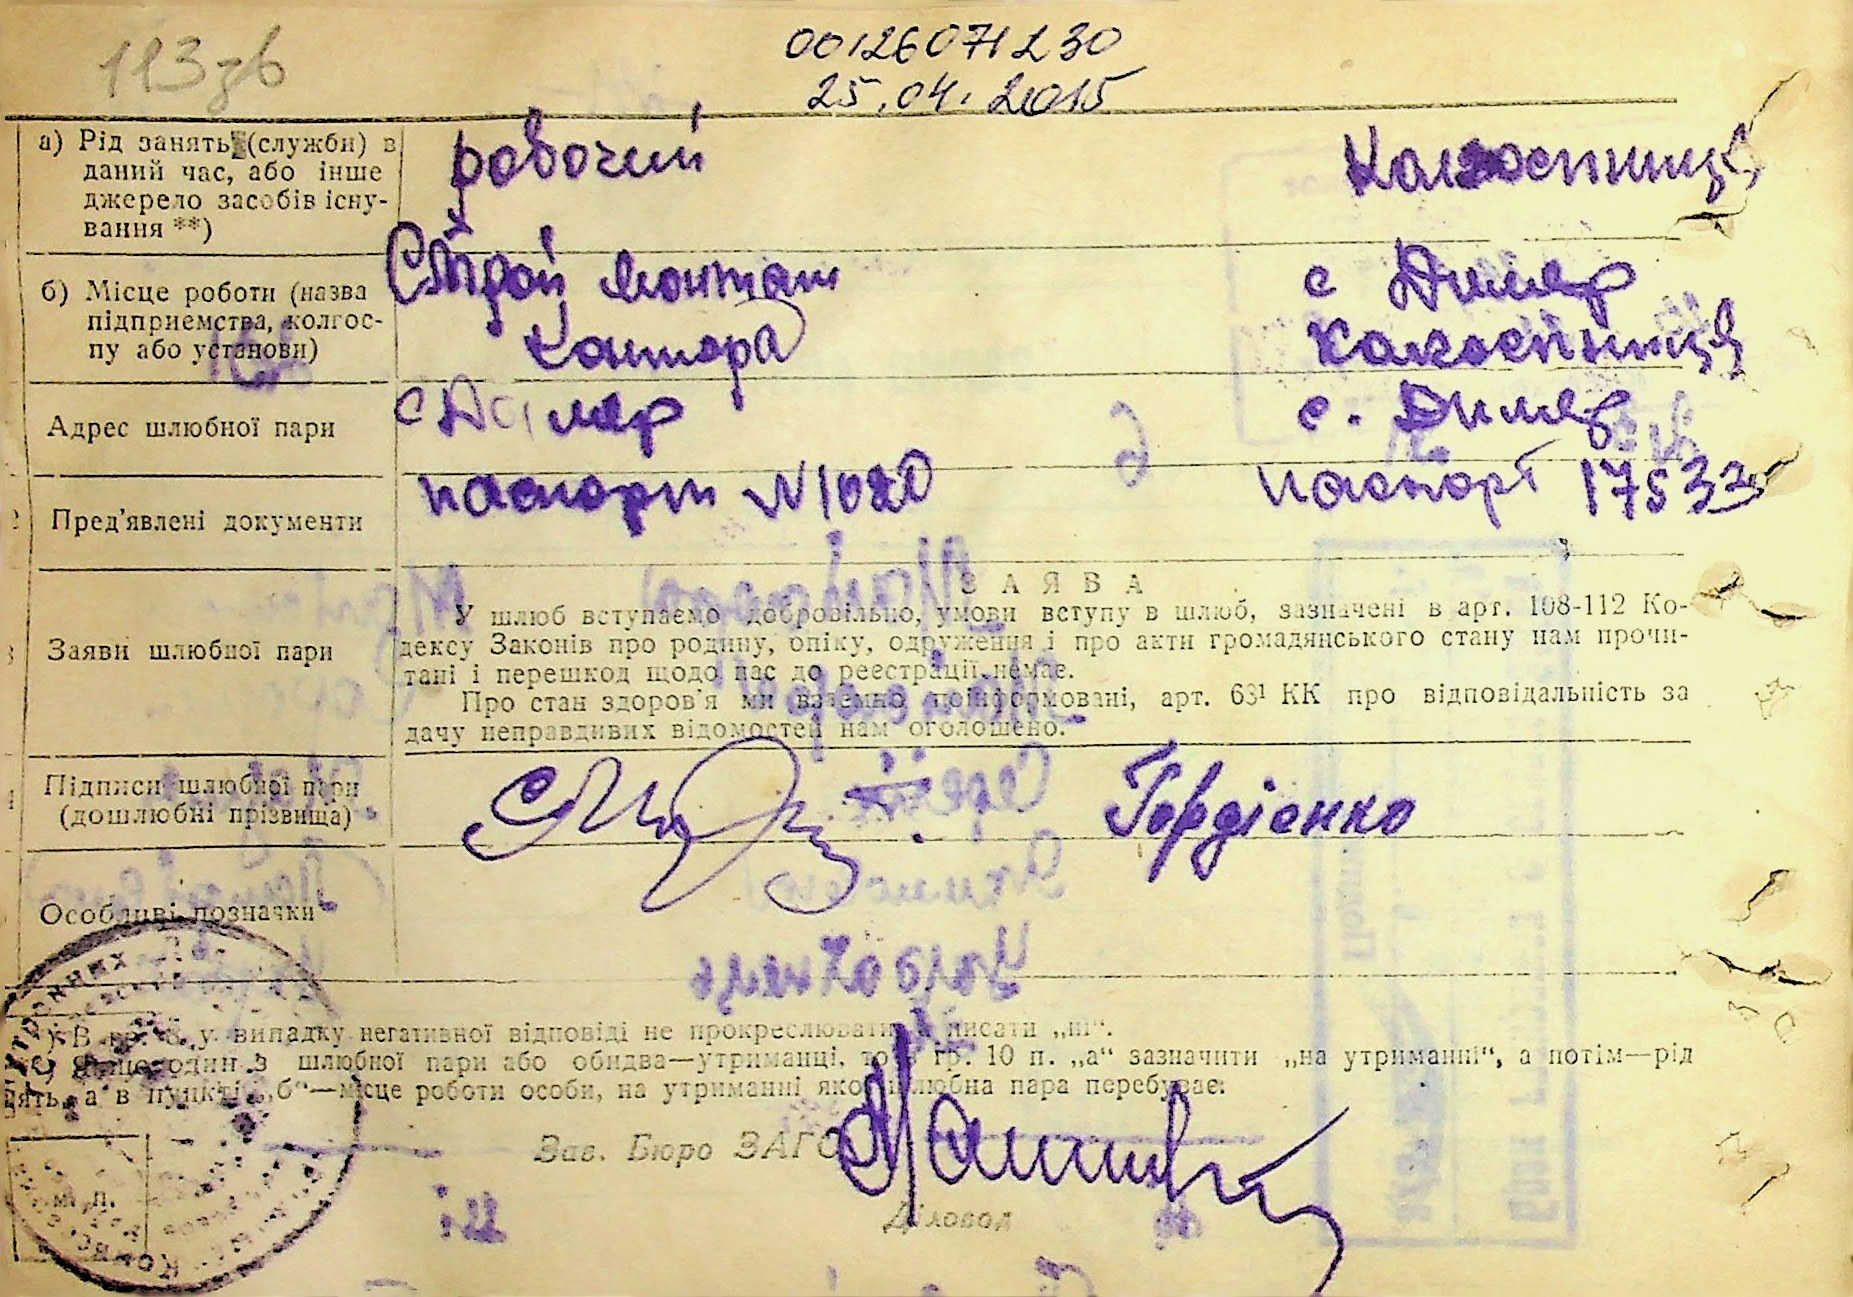 113зв
00126071230
25.04.2015
а) Рід занять (служби) в
даний час, або інше
джерело засобів існу-
вання **)
робочий
Колгоспниця
б) Місце роботи (назва
підприємства, колгос-
пу або установи)
Строй монтаж
контора
с Димер
колгоспниця
Адрес шлюбної пари
с Димер
с. Димер
Пред'явлені документи
паспорт N 1020
паспорт 17533
Заяви шлюбної пари
ЗАЯВА
У шлюб вступаємо добровільно, умови вступу в шлюб, зазначені в арт. 108-112 Ко-
дексу Законів про родину, опіку, одруження і про акти громадянського стану нам прочи-
тані і перешкод щодо нас до реєстрації немає.
Про стан здоров'я ми взаємно поінформовані, арт. 63¹ КК про відповідальність за
дачу неправдивих відомостей нам оголошено.
Підписи шлюбної пари
(дошлюбні прізвища)
Гордієнко
Особливі позначки
у випадку негативної відповіді не прокреслювати, а писати „ні“.
один з шлюбної пари або обидва—утриманці, то в гр. 10 п. „а“ зазначити „на утриманні“, а потім—рід
а в пункті „б“—місце роботи особи, на утриманні якої шлюбна пара перебуває.
Зав. Бюро ЗАГС
Діловод
м. п.